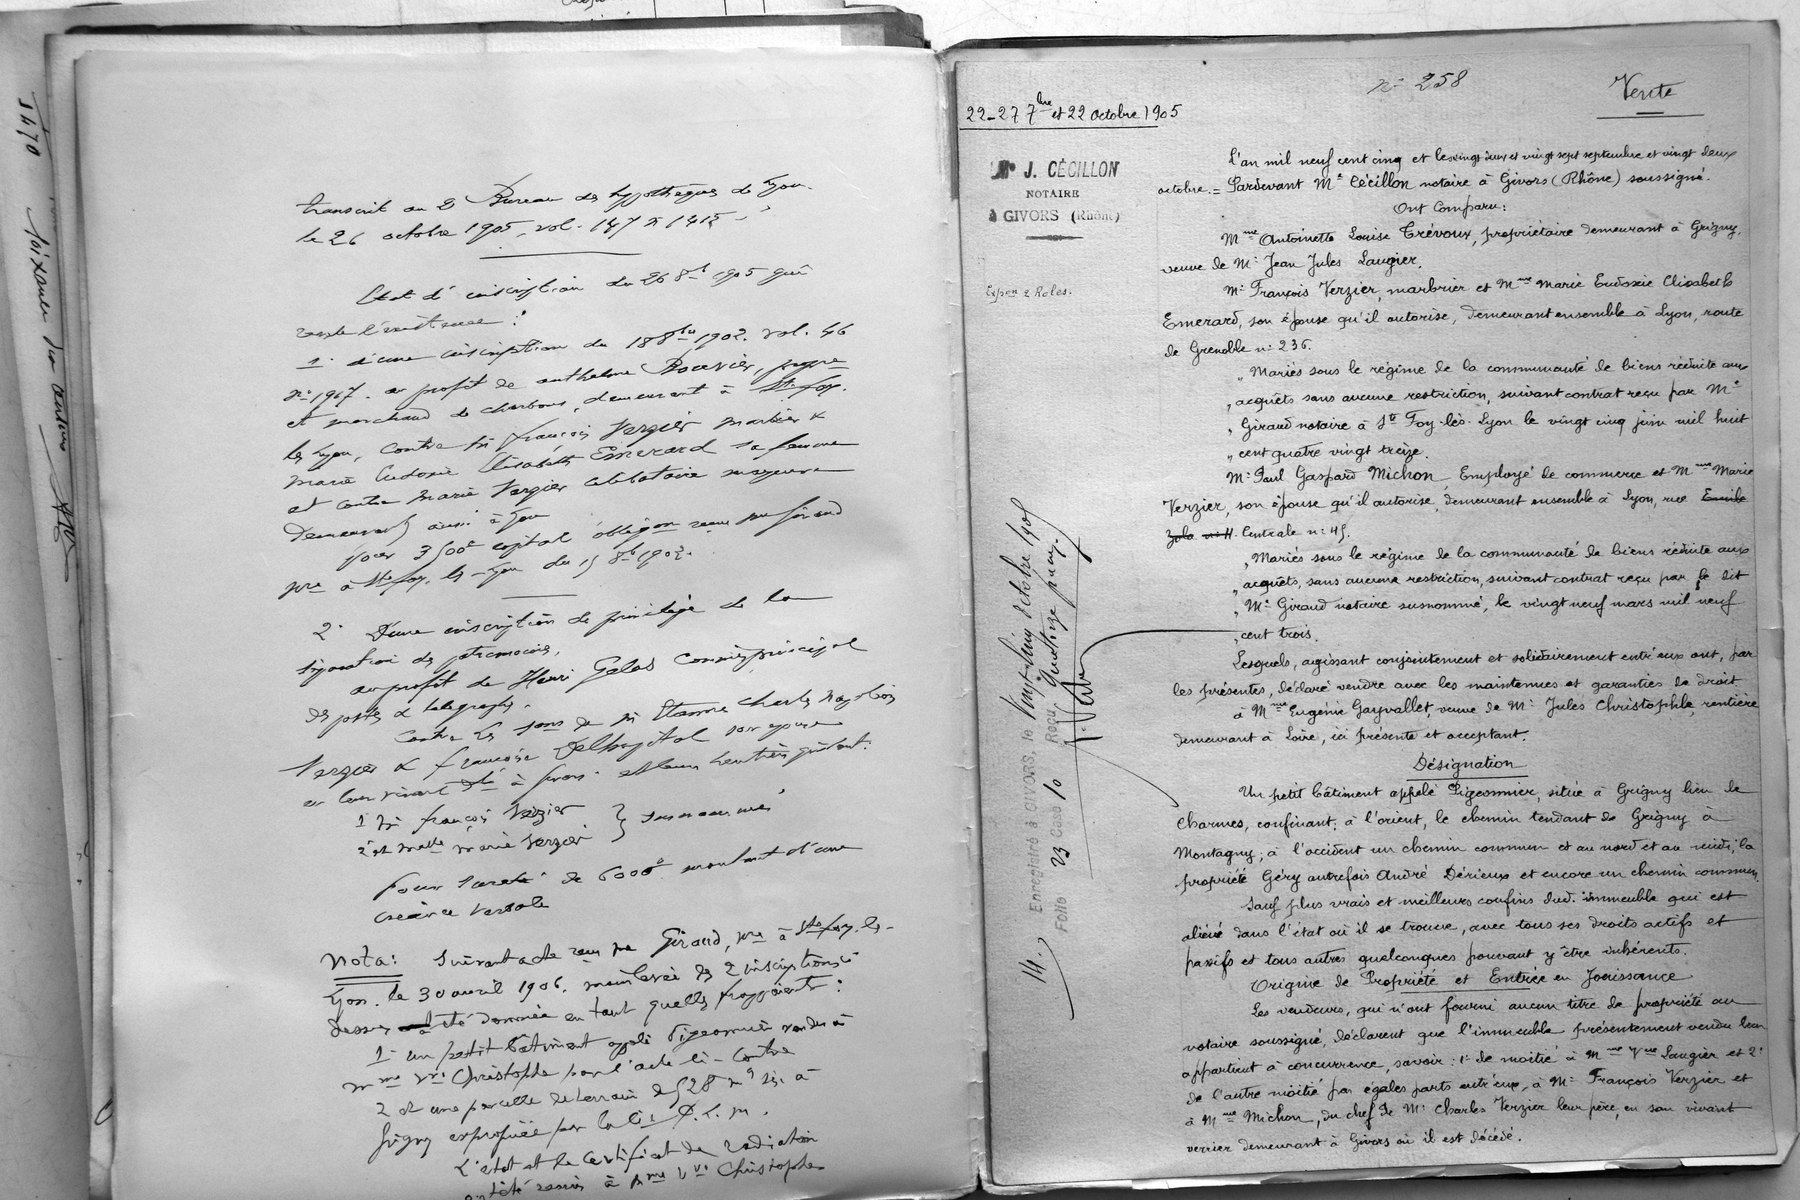 transcrit au 2e Bureau des hypothèques de Lyon
le 26 octobre 1905, vol. 147 n° 1415
Etat d'inscription du 26 8bre 1905 qui
1° d'une inscription du 18 8bre 1902. vol. 46
n° 1967. au profit de anthelme Bouvier, propre
et marchand de charbons, demeurant à Ste foy.
les Lyon, contre M. françois Verzier marbrier &
Marie Eudoxie Elisabeth Emerard sa femme
et contre Marie Verzier célibataire majeure
demeurant aussi à Lyon
pour 3500f capital oblig.on reçue par Giraud
nre à Ste foy. les Lyon du 15 8bre 1902.
2° D'une inscription de privilège de la
séparation des patrimoines,
au profit de Henri Galas commis principal
des postes & telegraphes.
Contre la succ.on de M. Etienne Charles Napoléon
Verzier & françoise Delhopital son épouse
en leur vivant dts à Givors. et leurs héritiers qui sont.
1° M. françois Verzier } susnommés
2° et Melle Marie Verzier
Pour sureté de 6000f montant d'une
créance verbale
Nota: Suivant acte reçu Me Giraud, nre à Ste foy. les-
Lyon. le 30 avril 1906. mainlevée des 2 inscriptions ci
dessus a été donnée en tant qu'elles frappaient:
1° un petit bâtiment appelé Pigeonnier vendu à
Mme Vve Christophe par l'acte ci-contre
2° et une parcelle de terrain de 528 m² sise à
Grigny expropriée par la Cie P.L.M.
L'état et le certificat de radiation
ont été remis à Mme Vve Christophe
n° 258
Vente
22-27 7bre et 22 octobre 1905
Me J. CÉCILLON
NOTAIRE
à GIVORS (Rhône)
Expon 2 Roles.
L'an mil neuf cent cinq et les vingt deux et vingt sept septembre et vingt deux
octobre. = Pardevant Me Cécillon notaire à Givors (Rhône) soussigné.
Ont Comparu:
Mme Antoinette Louise Trévoux, propriétaire demeurant à Grigny,
veuve de Mr Jean Jules Laugier.
Mr François Verzier, marbrier et Mme Marie Eudoxie Elisabeth
Emerard, son épouse qu'il autorise, demeurant ensemble à Lyon, route
de Grenoble n° 236.
„ Mariés sous le régime de la communauté de biens réduite aux
„ acquêts sans aucune restriction, suivant contrat reçu par Me
„ Giraud notaire à Ste Foy-lès-Lyon le vingt cinq juin mil huit
„ cent quatre vingt treize.
Mr Paul Gaspard Michon, Employé de commerce et Mme Marie
Verzier, son épouse qu'il autorise, demeurant ensemble à Lyon, rue Emile
Zola n° 11. Centrale n° 45.
„ Mariés sous le régime de la communauté de biens réduite aux
„ acquêts, sans aucune restriction, suivant contrat reçu par le dit
„ Me Giraud notaire susnommé, le vingt neuf mars mil neuf
„ cent trois.
Lesquels, agissant conjointement et solidairement entr'eux ont, par
les présentes, déclaré vendre avec les maintenues et garanties de droit
à Mme Eugénie Gayvallet, veuve de Mr Jules Christophle, rentière
demeurant à Loire, ici présente et acceptant.
Désignation
Un petit bâtiment appelé Pigeonnier, situé à Grigny lieu de
Charmes, confinant; à l'orient, le chemin tendant de Grigny à
Montagny; à l'occident un chemin commun et au nord et au midi, la
propriété Géry autrefois André Dérieux et encore un chemin commun.
Sauf plus vrais et meilleurs confins dud. immeuble qui est
aliéné dans l'état où il se trouve, avec tous ses droits actifs et
passifs et tous autres quelconques pouvant y être inhérents.
Origine de Propriété et Entrée en Jouissance
Les vendeurs, qui n'ont fourni aucun titre de propriété au
notaire soussigné, déclarent que l'immeuble présentement vendu leur
appartient à concurrence, savoir: 1° de moitié à Mme Vve Laugier et 2°
de l'autre moitié par égales parts entr'eux, à Mr François Verzier et
à Mme Michon, du chef de Mr Charles Verzier leur père, en son vivant
verrier demeurant à Givors où il est décédé.
Enregistré à GIVORS, le Vingt-cinq octobre 1905
Folio 23 Case 10 Reçu
14.